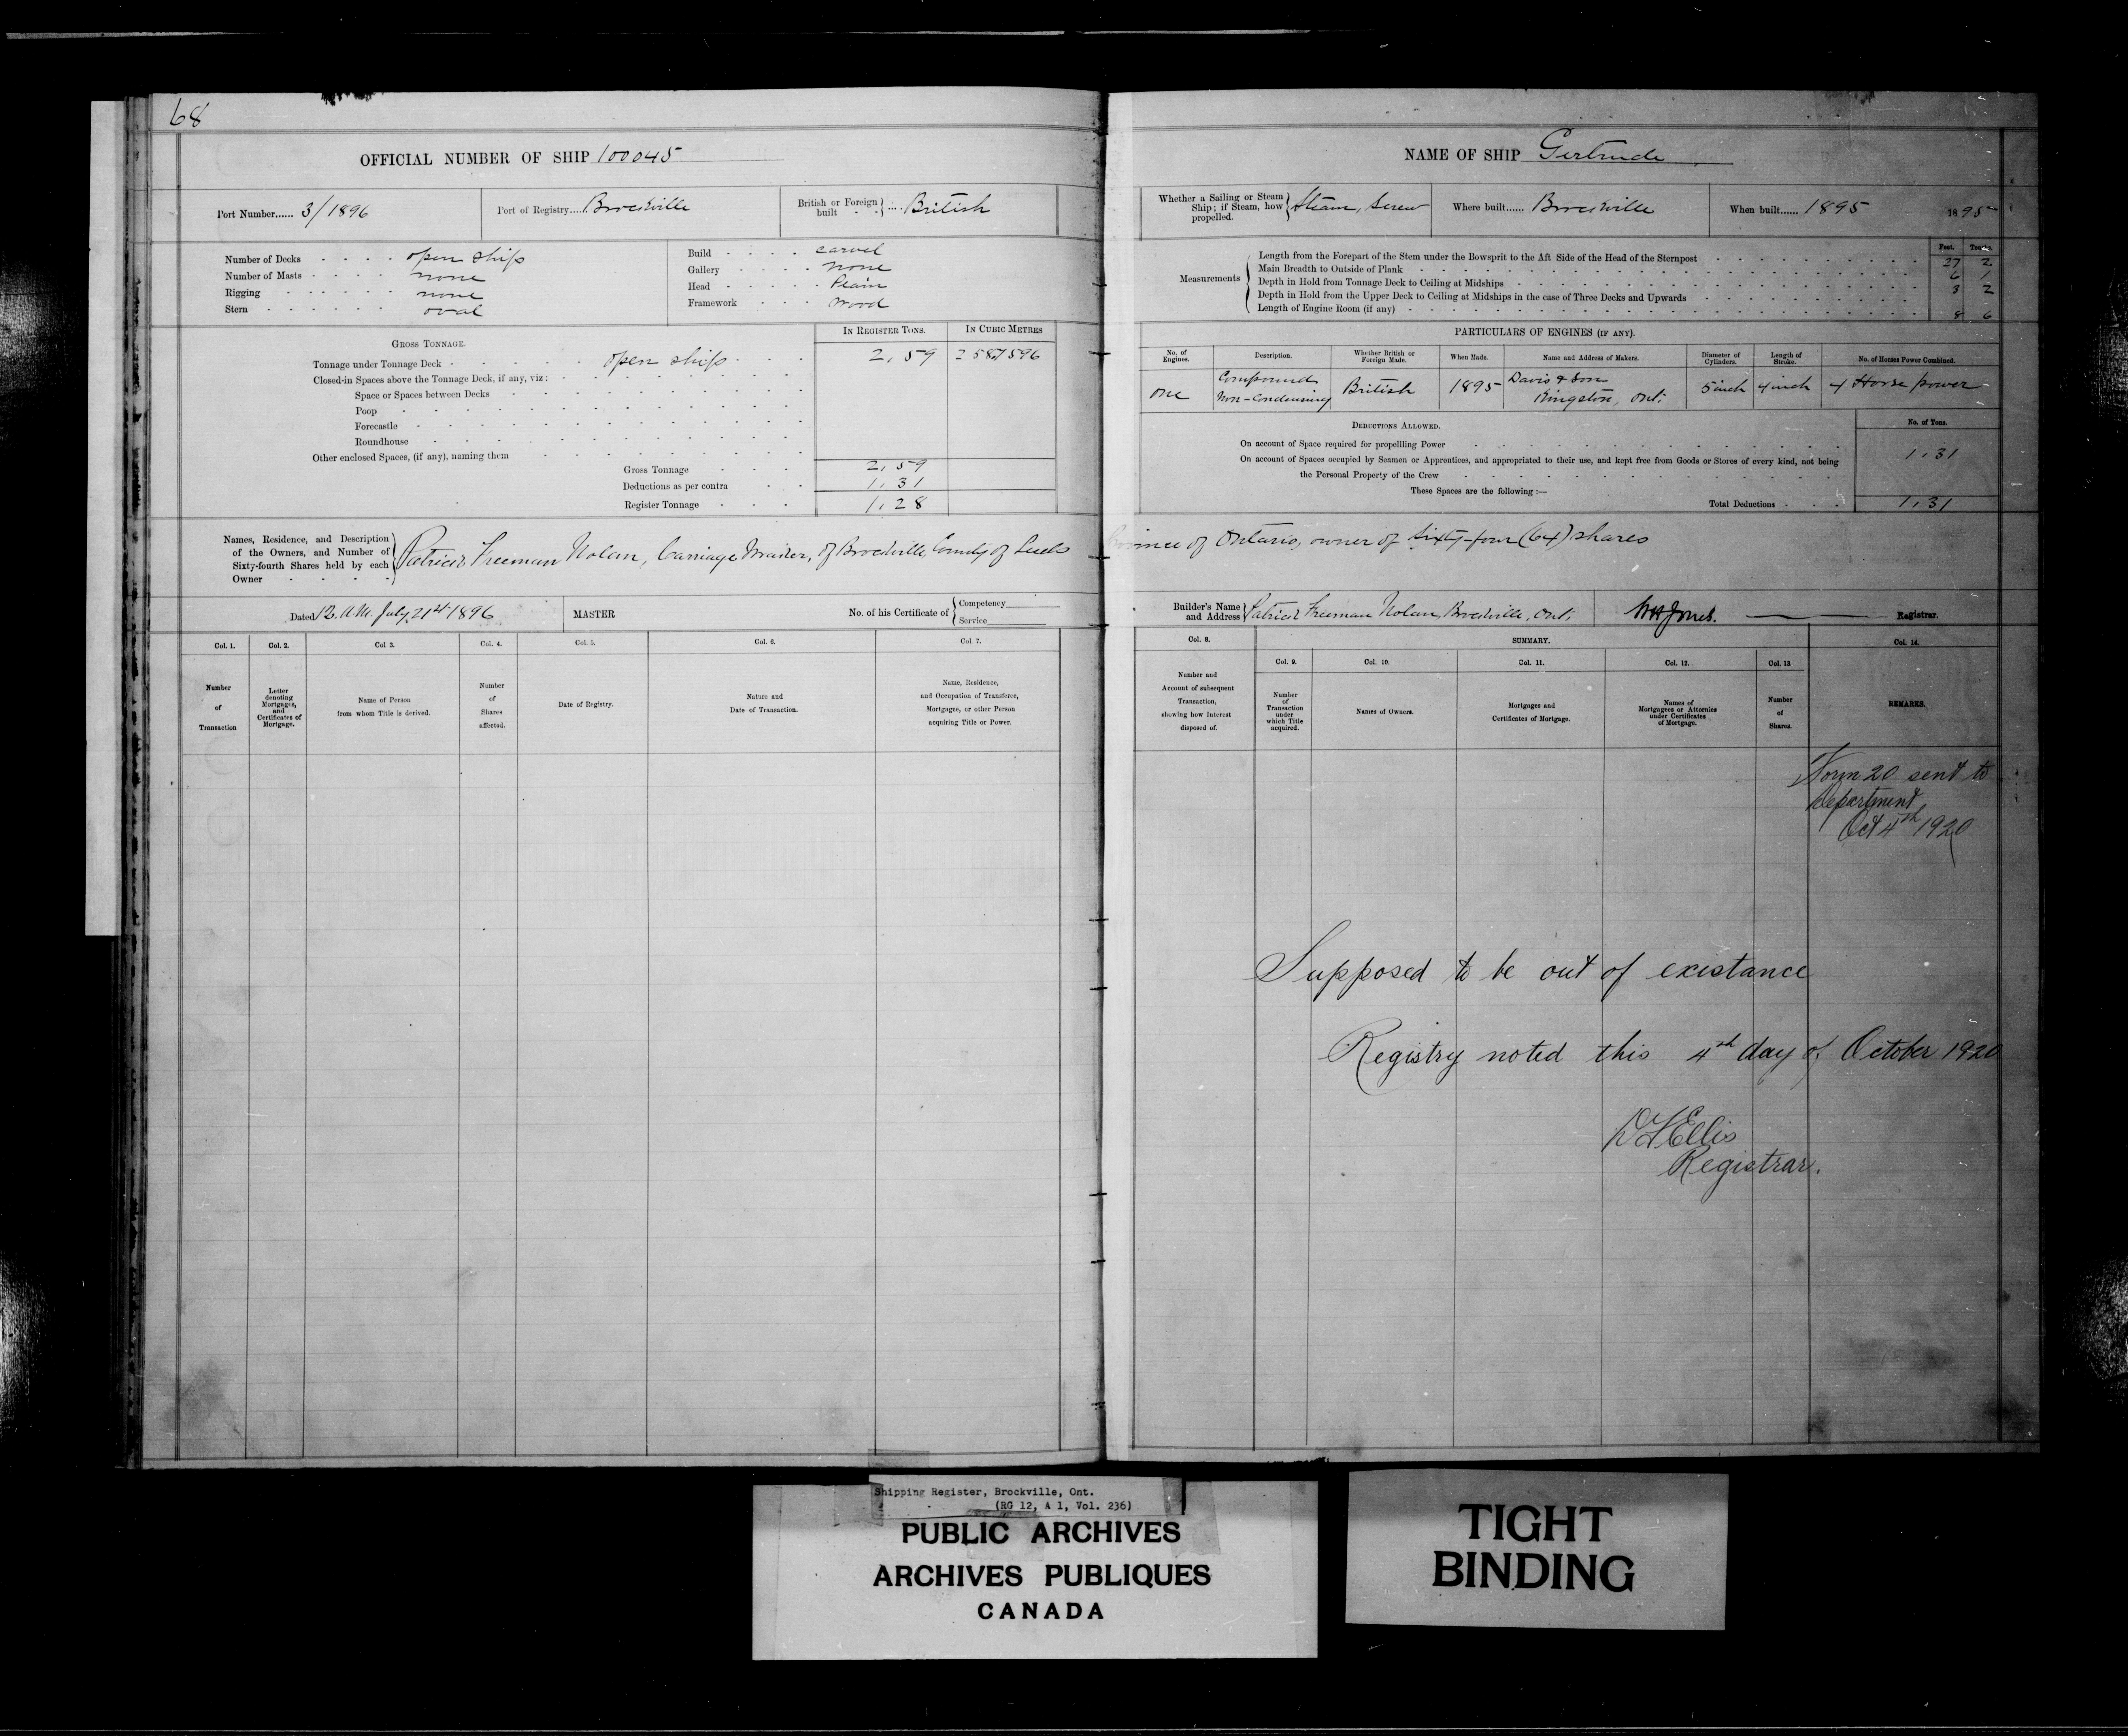 68
OFFICIAL NUMBER OF SHIP 100045
Port Number...... 3/1896
Port of Registry.... Brockville
British or Foreign built .... British
Number of Decks open ship
Number of Masts none
Rigging none
Stern oval
Build carvel
Gallery none
Head Plain
Framework Wood
GROSS TONNAGE.
IN REGISTER TONS.
IN CUBIC METRES
Tonnage under Tonnage Deck open ship 2,59 2587596
Closed-in Spaces above the Tonnage Deck, if any, viz:
Space or Spaces between Decks
Poop
Forecastle
Roundhouse
Other enclosed Spaces, (if any), naming them
Gross Tonnage 2,59
Deductions as per contra 1,31
Register Tonnage 1,28
Names, Residence, and Description
of the Owners, and Number of
Sixty-fourth Shares held by each
Owner
Patrick Freeman Nolan, Carriage Maker, of Brockville, County of Leeds
Dated 12. A.M. July 21st 1896
MASTER
No. of his Certificate of
Competency
Service
Col. 1.
Number
of
Transaction
Col. 2.
Letter
denoting
Mortgages,
and
Certificates of
Mortgage.
Col 3.
Name of Person
from whom Title is derived.
Col. 4.
Number
of
Shares
affected.
Col. 5.
Date of Registry.
Col. 6.
Nature and
Date of Transaction.
Col. 7.
Name, Residence,
and Occupation of Transferee,
Mortgagee, or other Person
acquiring Title or Power.
NAME OF SHIP Gertrude
Whether a Sailing or Steam
Ship; if Steam, how
propelled.
Steam, Screw
Where built...... Brockville
When built...... 1895
1895
Measurements
Feet. Tenths.
Length from the Forepart of the Stem under the Bowsprit to the Aft Side of the Head of the Sternpost 27 2
Main Breadth to Outside of Plank 6 1
Depth in Hold from Tonnage Deck to Ceiling at Midships 3 2
Depth in Hold from the Upper Deck to Ceiling at Midships in the case of Three Decks and Upwards
Length of Engine Room (if any) 8 6
PARTICULARS OF ENGINES (IF ANY).
No. of
Engines.
Description.
Whether British or
Foreign Made.
When Made.
Name and Address of Makers.
Diameter of
Cylinders.
Length of
Stroke.
No. of Horses Power Combined.
one
Compound
Non-Condensing
British
1895
Davis & Son
Kingston, Ont.
5 inch
4 inch
4 Horse power
DEDUCTIONS ALLOWED.
No. of Tons.
On account of Space required for propellling Power 1.31
On account of Spaces occupied by Seamen or Apprentices, and appropriated to their use, and kept free from Goods or Stores of every kind, not being
the Personal Property of the Crew
These Spaces are the following :—
Total Deductions 1,31
Province of Ontario, owner of Sixty-four (64) shares
Builder's Name
and Address
Patrick Freeman Nolan, Brockville, Ont.
WH Jones. Registrar.
Col. 8.
Number and
Account of subsequent
Transaction,
showing how Interest
disposed of.
SUMMARY.
Col. 9.
Number
of
Transaction
under
which Title
acquired.
Col. 10.
Names of Owners.
Col. 11.
Mortgages and
Certificates of Mortgage.
Col. 12.
Names of
Mortgagees or Attornies
under Certificates
of Mortgage.
Col. 13
Number
of
Shares.
Col. 14.
REMARKS.
Form 20 sent to
Department
Oct 4th 1920
Supposed to be out of existance
Registry noted this 4th day of October 1920
Ellis
Registrar.
Shipping Register, Brockville, Ont.
(RG 12, A 1, Vol. 236)
PUBLIC ARCHIVES
ARCHIVES PUBLIQUES
CANADA
TIGHT
BINDING